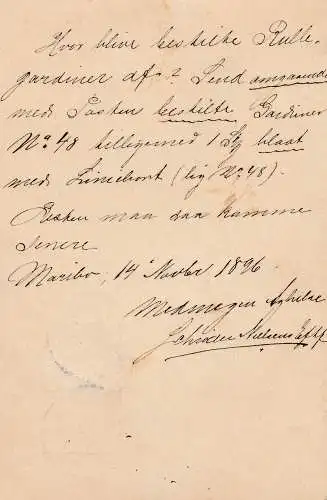 Hvor blive bestilte Rulle-
gardiner af? Send omgaaende
med Posten bestilte Gardiner
No. 48 tilligemed 1 St blaat
med (lig No. 48).
Resten maa saa komme
senere
Maribo, 14 Novbr 1896.
Med megen Agtelse
Schrøder Nielsens Eftf